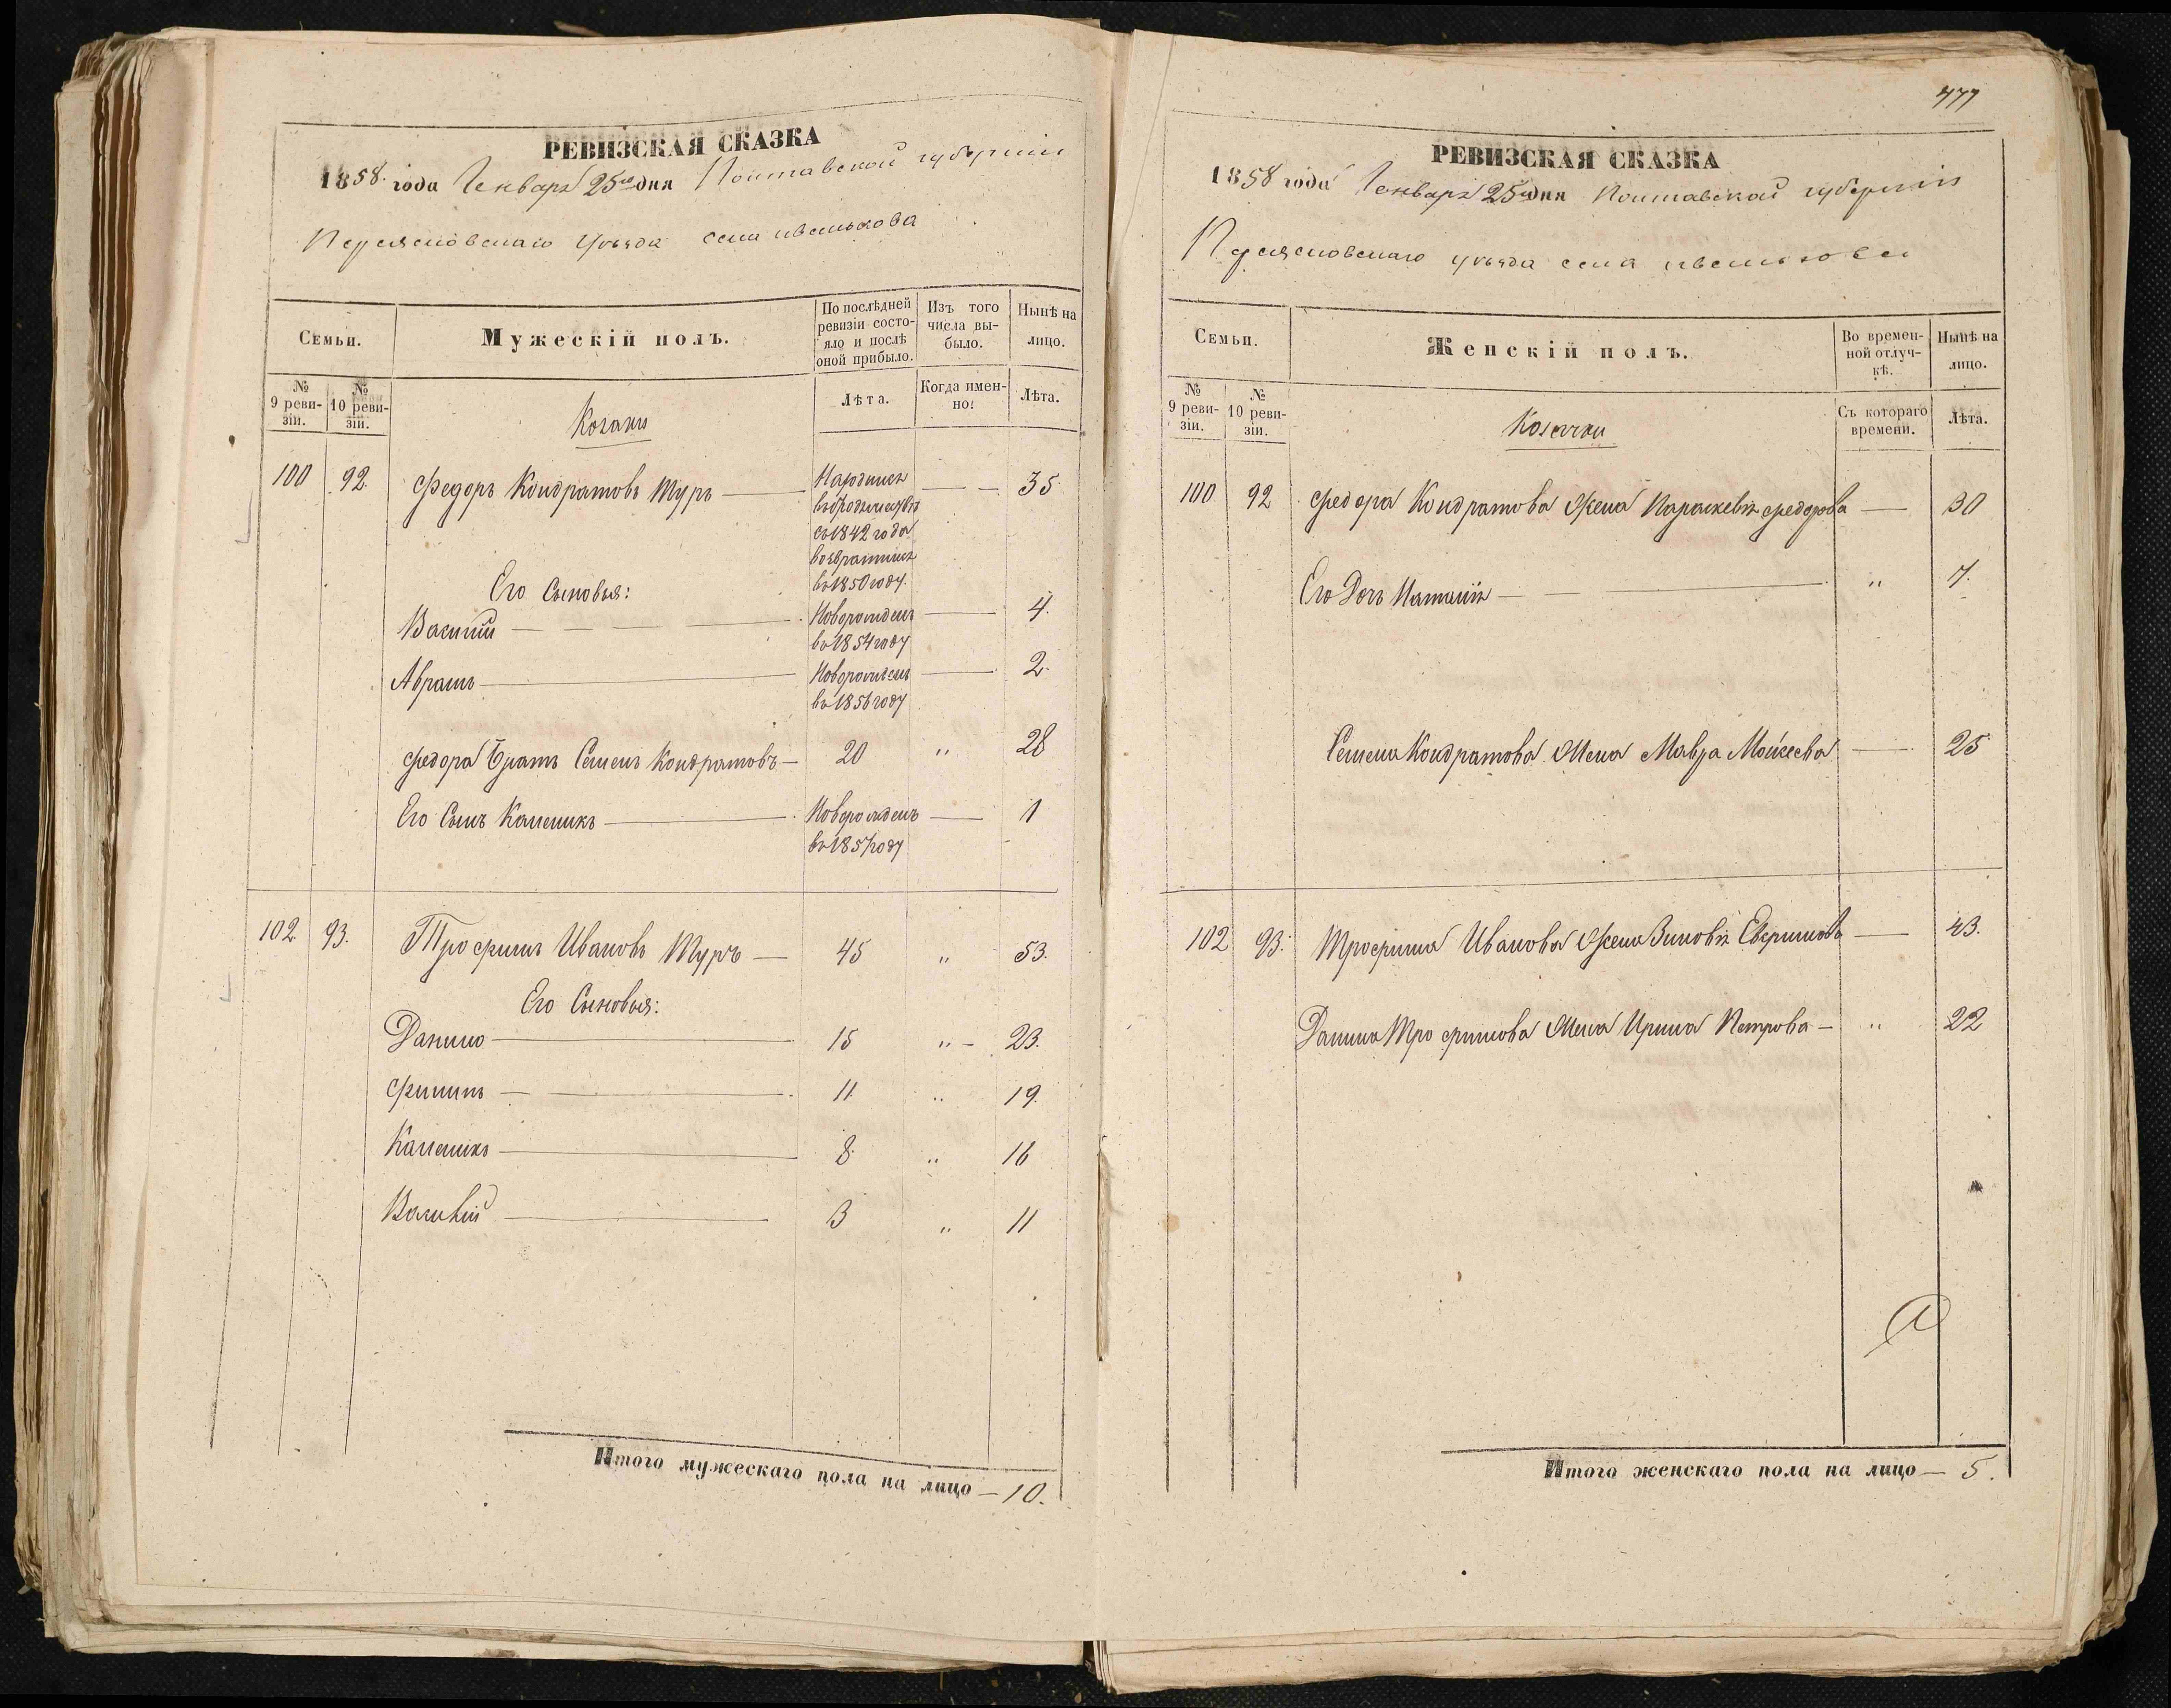 РЕВИЗСКАЯ СКАЗКА
1858 года Генваря 25го дня Полтавской губернии
Переясловскаго уѣзда села
Семьи.
Мужескій полъ.
По послѣдней ревизіи состо-
яло и послѣ
оной прибыло.
Изъ того
числа вы-
было.
Нынѣ на
лицо.
№
9 реви-
зіи.
№
10 реви-
зіи.
Козаки
Лѣта.
Когда имен-
но:
Лѣта.
100 92. Федоръ Кондратовъ Туръ — — — 35
съ 1842 года
возвратился
въ 1850 году.
Его Сыновья:
Василий — — — Новорожденъ — 4.
въ 1854 году
Абрамъ — Новорожденъ — 2.
въ 1856 году
Федора Братъ Семенъ Кондратовъ — 20 „ 28
Его Сынъ Каленикъ — Новорожденъ — 1
въ 1857 году
102. 93. Трофимъ Ивановъ Туръ — 45 „ 53.
Его Сыновья:
Данило — 15 „ — 23.
Филипъ — 11. „ 19.
Каленикъ — 8. „ 16
Василий — 3 „ 11
Итого мужескаго пола на лицо — 10.
477
РЕВИЗСКАЯ СКАЗКА
1858 года Генваря 25го дня Полтавской губернии
Переясловскаго уѣзда села
Семьи.
Женскій полъ.
Во времен-
ной отлуч-
кѣ.
Нынѣ на
лицо.
№
9 реви-
зіи.
№
10 реви-
зіи.
Козачки
Съ котораго
времени.
Лѣта.
100 92 Федора Кондратова Жена Параскевія Федорова — 30
Его Дочь Наталія — — „ 7.
Семена Кондратова Жена Мавра Моисеева — 25
102 93. Трофима Иванова Жена Зиновія — 43.
Данила Трофимова Жена Ирина Петрова — „ 22
Итого женскаго пола на лицо — 5.